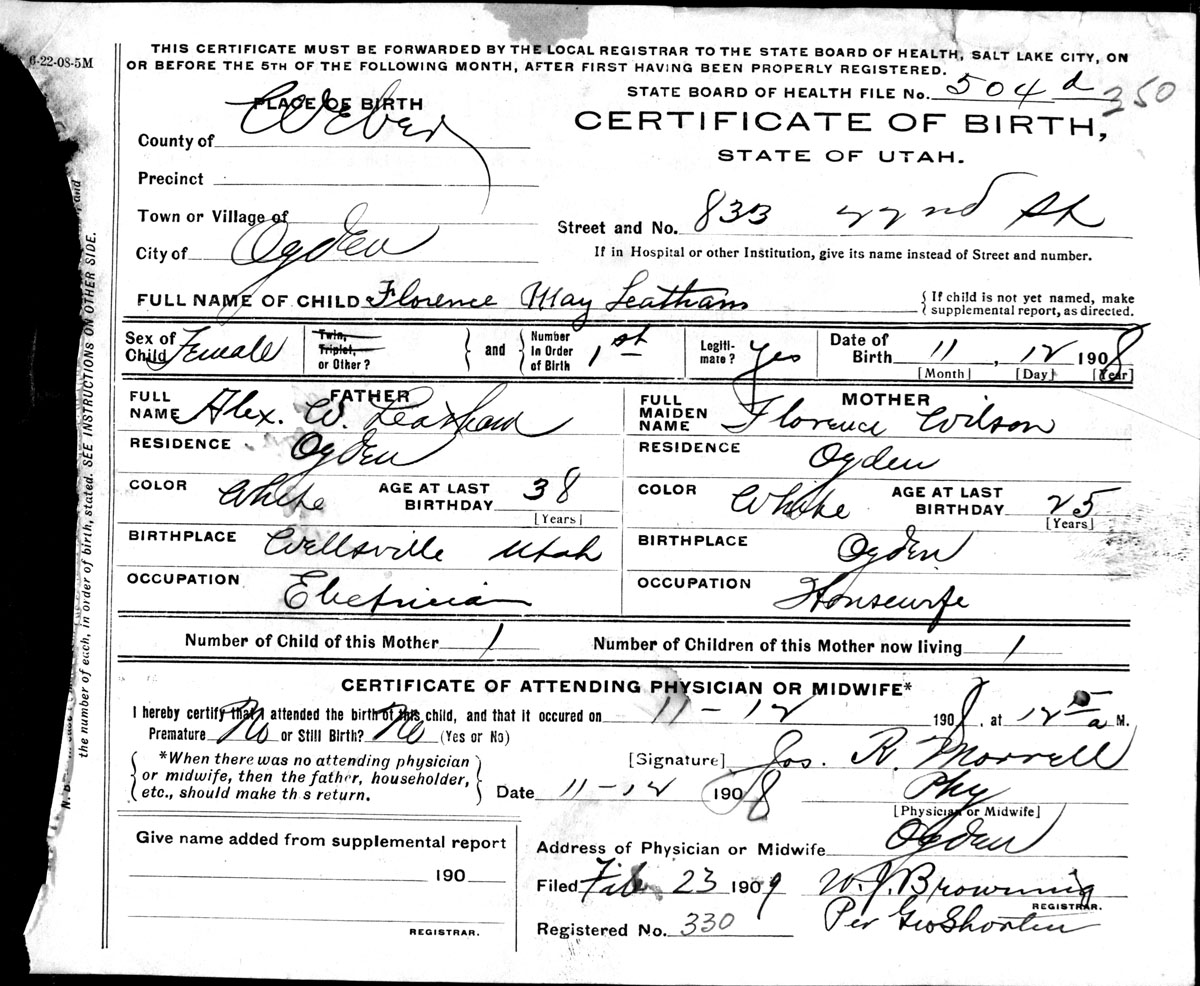 6-22-08-5M
THIS CERTIFICATE MUST BE FORWARDED BY THE LOCAL REGISTRAR TO THE STATE BOARD OF HEALTH, SALT LAKE CITY, ON
OR BEFORE THE 5TH OF THE FOLLOWING MONTH, AFTER FIRST HAVING BEEN PROPERLY REGISTERED.
STATE BOARD OF HEALTH FILE No. 504 d 350
PLACE OF BIRTH
CERTIFICATE OF BIRTH,
STATE OF UTAH.
County of Weber
Precinct
Town or Village of
Street and No. 833 22nd St
City of Ogden
If in Hospital or other Institution, give its name instead of Street and number.
FULL NAME OF CHILD Florence May Leatham
{ If child is not yet named, make
supplemental report, as directed.
Sex of Child Female
Twin, Triplet, or Other?
and
Number in Order of Birth 1st
Legiti-mate? Yes
Date of Birth 11, 12 1908
[Month] [Day] [Year]
FATHER
FULL NAME Alex. W. Leatham
RESIDENCE Ogden
COLOR White AGE AT LAST BIRTHDAY 38
[Years]
BIRTHPLACE Wellsville Utah
OCCUPATION Electrician
MOTHER
FULL MAIDEN NAME Florence Wilson
RESIDENCE Ogden
COLOR White AGE AT LAST BIRTHDAY 25
[Years]
BIRTHPLACE Ogden
OCCUPATION Housewife
Number of Child of this Mother 1 Number of Children of this Mother now living 1
CERTIFICATE OF ATTENDING PHYSICIAN OR MIDWIFE*
I hereby certify that I attended the birth of this child, and that it occured on 11-12 1908, at 12 5 a M.
Premature No or Still Birth? No (Yes or No)
*When there was no attending physician
or midwife, then the father, householder,
etc., should make th s return.
[Signature] Jos. R. Morrell
Date 11-12 1908 Phy
[Physician or Midwife]
Give name added from supplemental report
190
REGISTRAR.
Address of Physician or Midwife Ogden
Filed Feb 23 1909 W. J. Browning
REGISTRAR.
Registered No. 330 Per Geo Shorten
the number of each, in order of birth, stated. SEE INSTRUCTIONS ON OTHER SIDE.